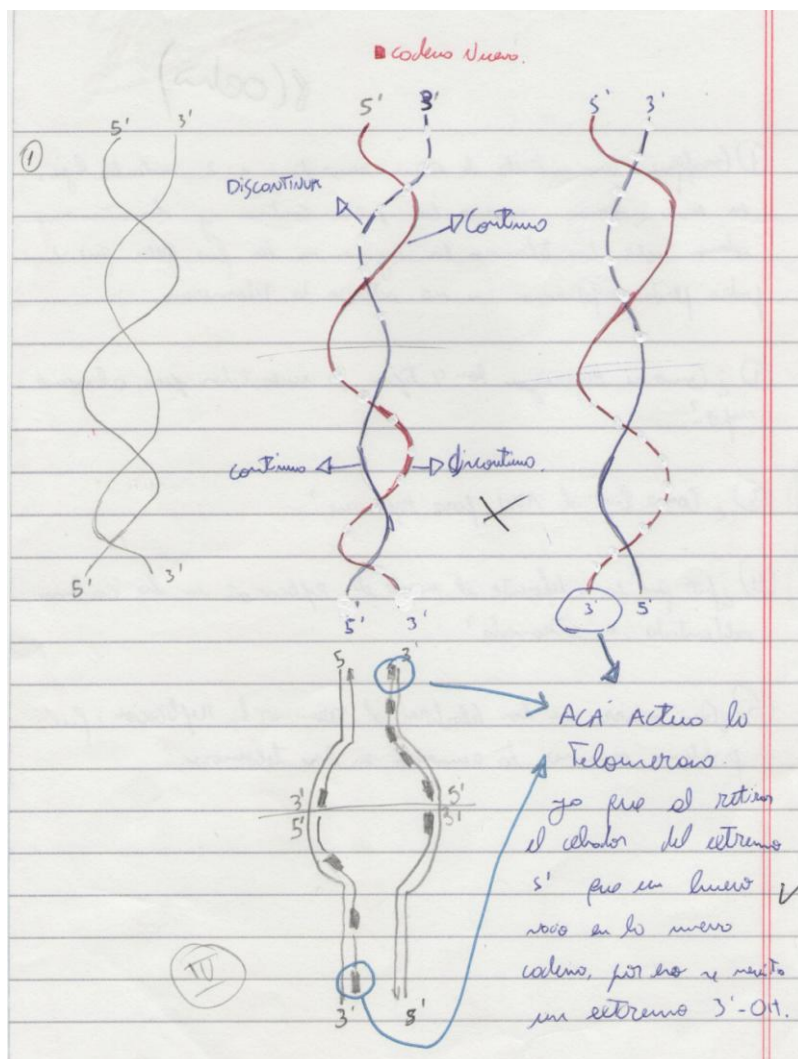 cadena Nueva.
5' 3'
5' 3'
5' 3'
①
DISCONTINUA
Continuo
continuo
discontinuo.
5' 3'
5' 3'
3' 5'
5 3'
ACÁ Actua la
Telomerasa.
ya que al retirar
3' 5'
5' 3'
el cebador del extremo
5' que un hueco
vacio en la nueva
cadena, por eso se necesita
un extremo 3'-OH.
IV
3' 5'